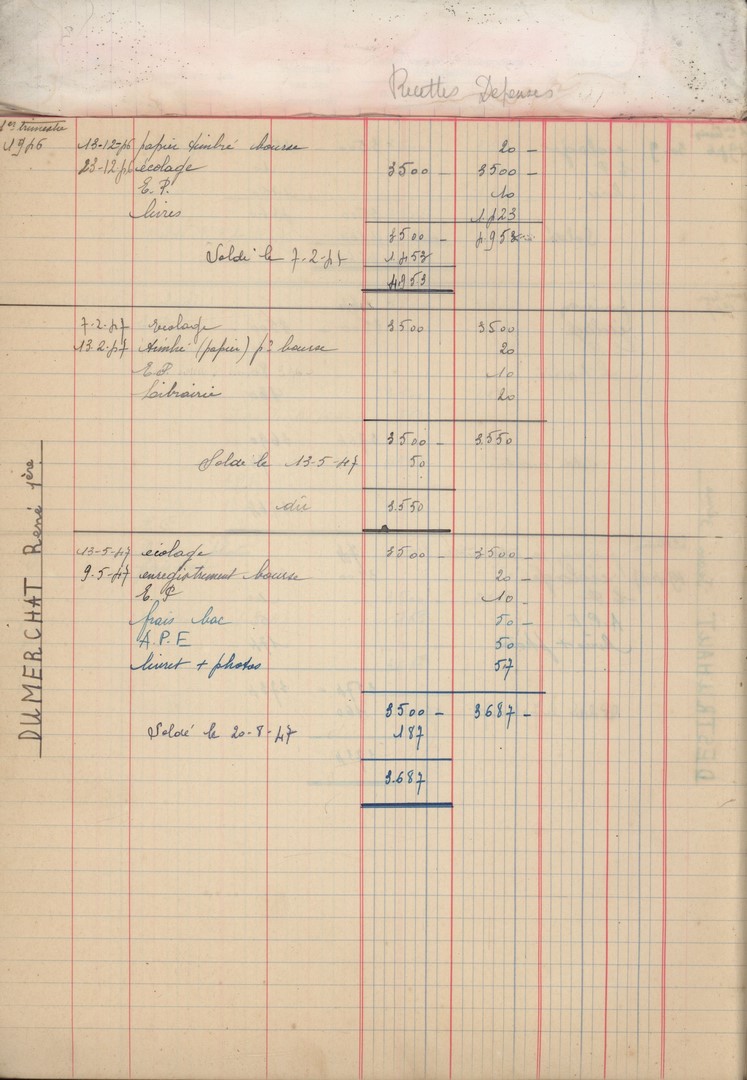 Recettes Dépenses
1er trimestre
1946 13-12-46 papier timbré bourse 20 -
23-12-46 écolage 3500 - 3500 -
E.P. 10
livres 1.423
3500 - 4.953
Soldé le 7-2-47 1.453
4.953
7-2-47 écolage 3500 3500
13.2-47 timbré (papier) pr bourse 20
E.P. 10
Librairie 20
3500 - 3.550
Soldé le 13-5-47 50
dû 3.550
13-5-47 écolage 3500 - 3500 -
9.5-47 enregistrement bourse 20 -
E.P 10 -
frais bac 50 -
A.P.E 50
livret + photos 57
3500 - 3687 -
Soldé le 20-8-47 187
3.687
DUMERCHAT René 1ère